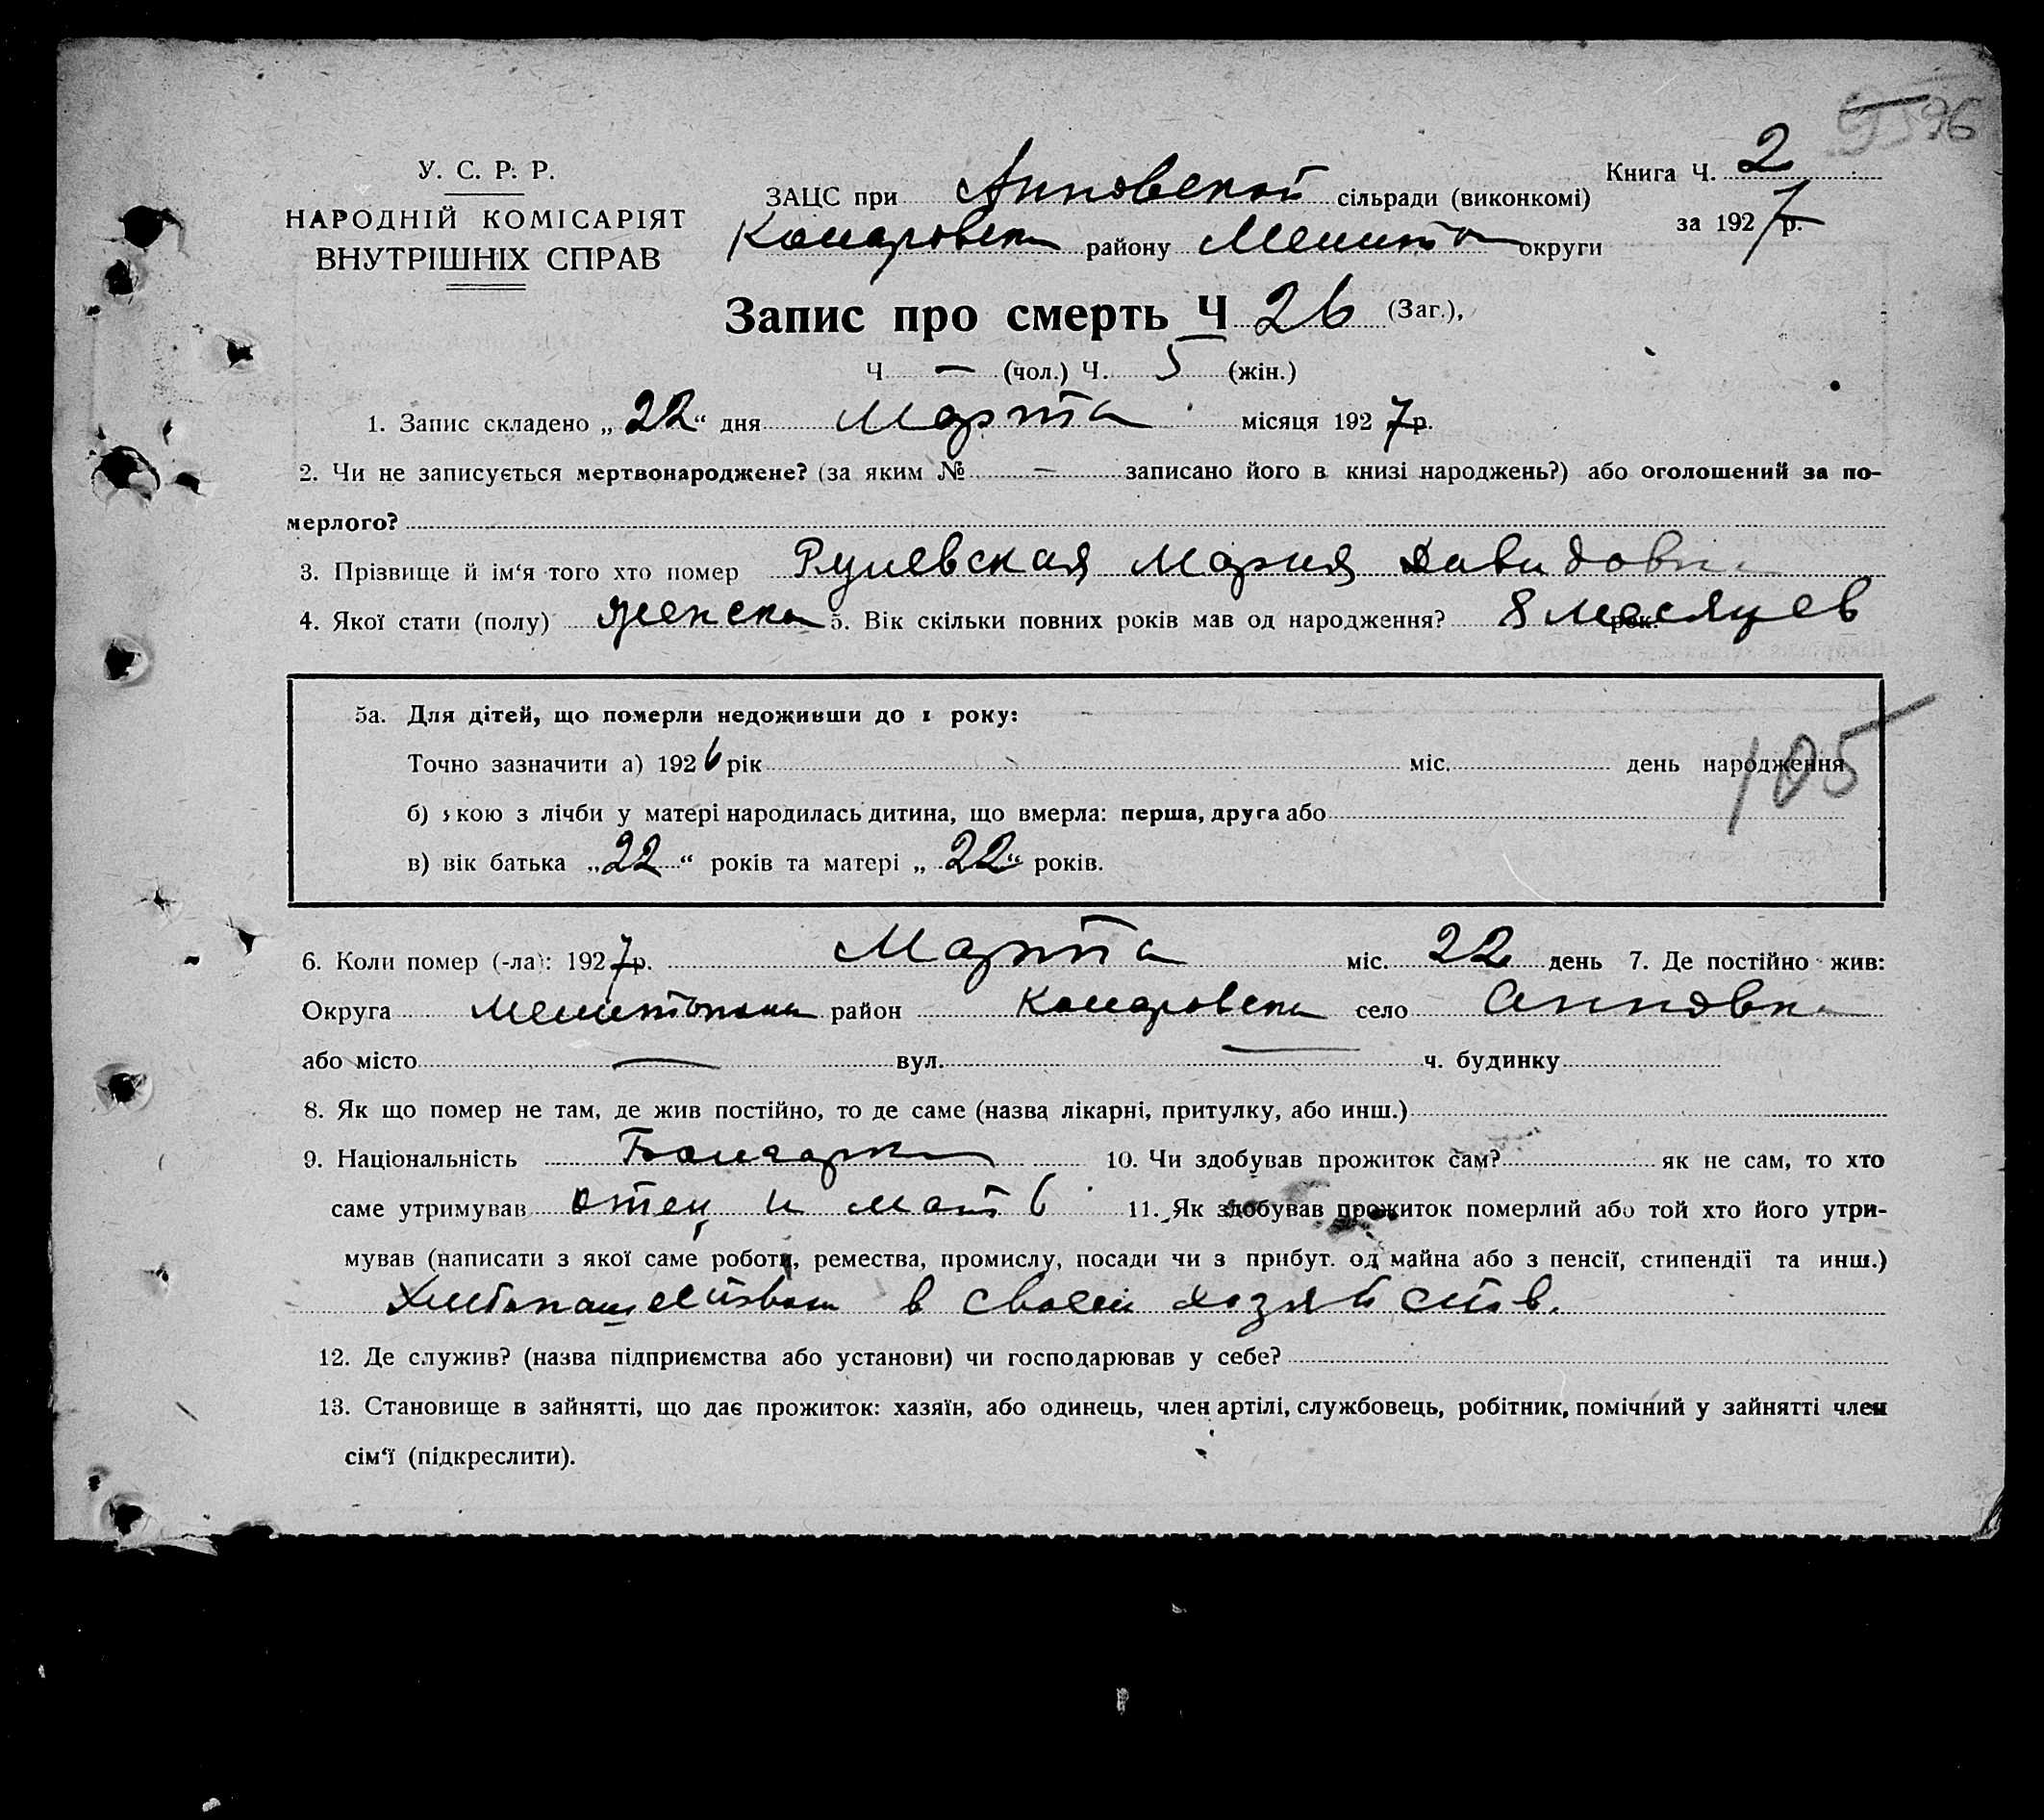 96
У. С. Р. Р.
НАРОДНІЙ КОМІСАРІЯТ
ВНУТРІШНІХ СПРАВ
Книга Ч. 2
за 1927 р.
ЗАЦС при Анновской сільради (виконкомі)
району Мелито округи
Запис про смерть Ч 26 (Заг.),
Ч — (чол.) Ч. 5 (жін.)
1. Запис складено „22“ дня Марта місяця 1927 р.
2. Чи не записується мертвонароджене? (за яким № — записано його в книзі народжень?) або оголошений за по-
мерлого?
3. Прізвище й ім‘я того хто помер Мария Давидовна
4. Якої стати (полу) женска 5. Вік скільки повних років мав од народження? 8 месяцев рок.
5а. Для дітей, що померли недоживши до 1 року:
Точно зазначити а) 1926 рік міс. день народження
105
б) якою з лічби у матері народилась дитина, що вмерла: перша, друга або
в) вік батька „22“ років та матері „22“ років.
6. Коли помер (-ла): 1927 р. Марта міс. 22 день 7. Де постійно жив:
Округа район село Анновка
або місто — вул. — ч. будинку
8. Як що помер не там, де жив постійно, то де саме (назва лікарні, притулку, або инш.)
9. Національність Болгарка 10. Чи здобував прожиток сам? як не сам, то хто
саме утримував отец и мать 11. Як здобував прожиток померлий або той хто його утри-
мував (написати з якої саме роботи, ремества, промислу, посади чи з прибут. од майна або з пенсії, стипендії та инш.)
в своем хозяйств.
12. Де служив? (назва підприємства або установи) чи господарював у себе?
13. Становище в зайнятті, що дає прожиток: хазяїн, або одинець, член артілі, службовець, робітник, помічний у зайнятті член
сім‘ї (підкреслити).